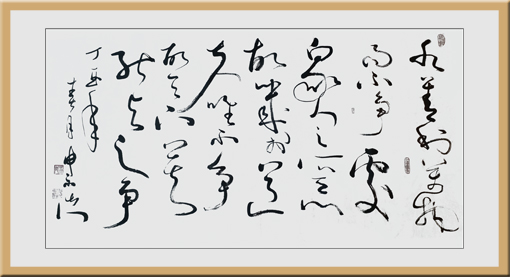 水善利萬物
而不争處
衆人之所惡
故幾於道
夫唯不争
故天下莫
能与之争
丁酉年
春月